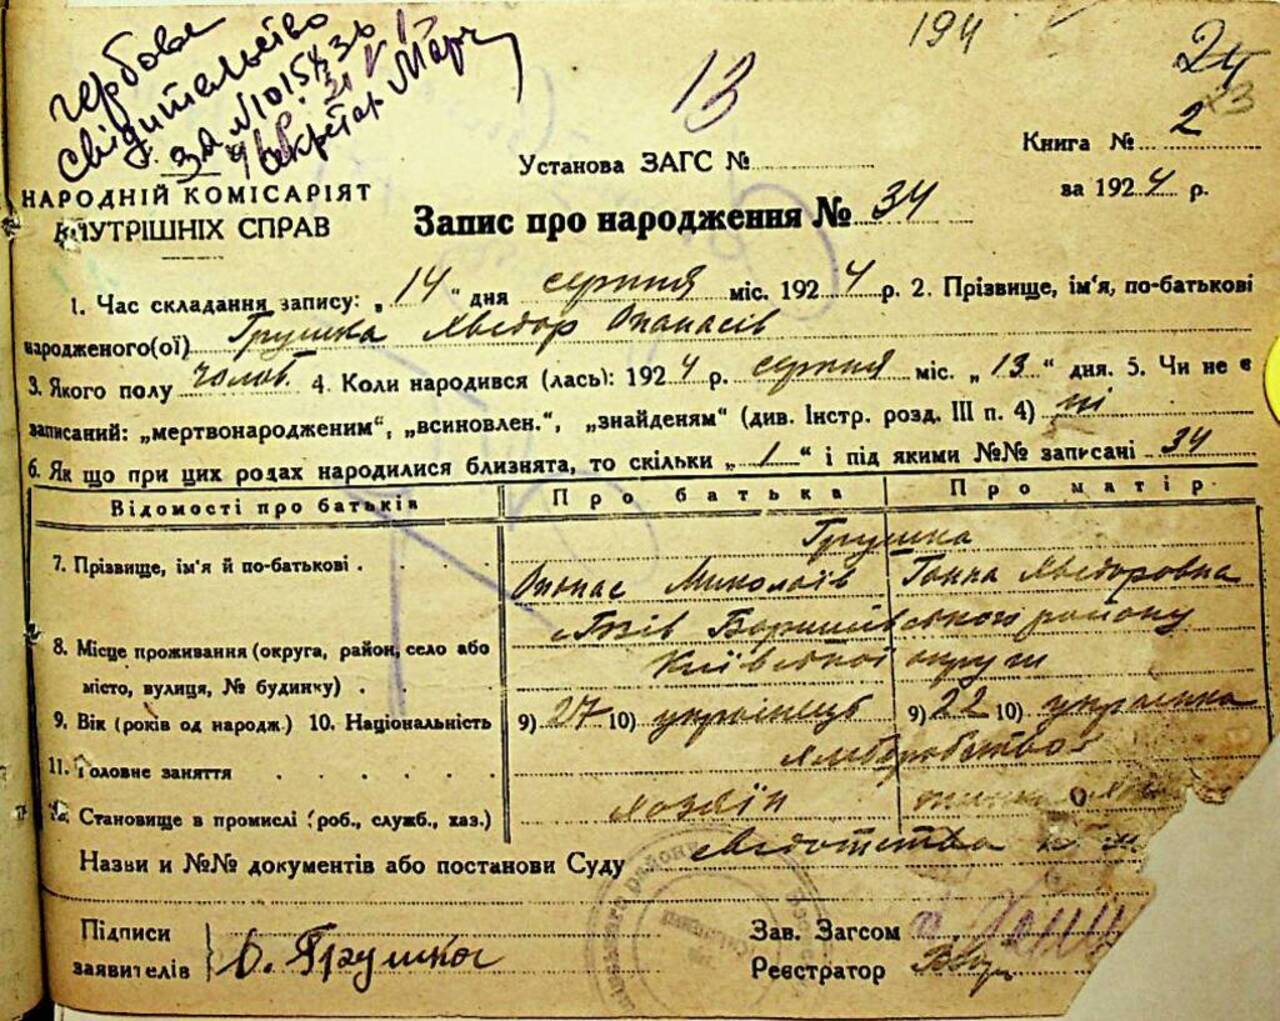 194
13
24
23
гербове
свідительство
за №
Секретар
Книга № 2
Установа ЗАГС №
за 1924 р.
НАРОДНІЙ КОМІСАРІЯТ
ВНУТРІШНІХ СПРАВ
Запис про народження № 34
1. Час складання запису: „14“ дня серпня міс. 1924 р. 2. Прізвище, ім'я, по-батькові
народженого(ої) Грушка Хведор Опанасів
3. Якого полу чолов. 4. Коли народився (лась): 1924 р. серпня міс. „13“ дня. 5. Чи не є
записаний: „мертвонародженим“, „всиновлен.“, „знайденям“ (див. Інстр. розд. III п. 4) ні
6. Як що при цих родах народилися близнята, то скільки „1“ і під якими №№ записані 34
Відомості про батьків Про батька Про матір
Грушка
7. Прізвище, ім'я й по-батькові Опанас Миколаїв Ганна Хведоровна
Боришівського району
8. Місце проживання (округа, район, село або Київської округи
місто, вулиця, № будинку)
9. Вік (років од народж.) 10. Національність 9) 27 10) українець 9) 22 10) українка
11. Головне заняття хліборобство
Становище в промислі (роб., служб., хаз.) хозяїн
Назви и №№ документів або постанови Суду
Підписи
заявителів О. Грушка
Зав. Загсом
Реєстратор